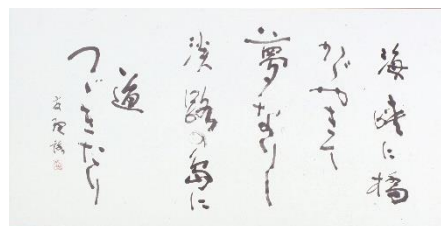 海峡に橋
かがやきて
夢なりし
淡路の島に
道
つゞきたり